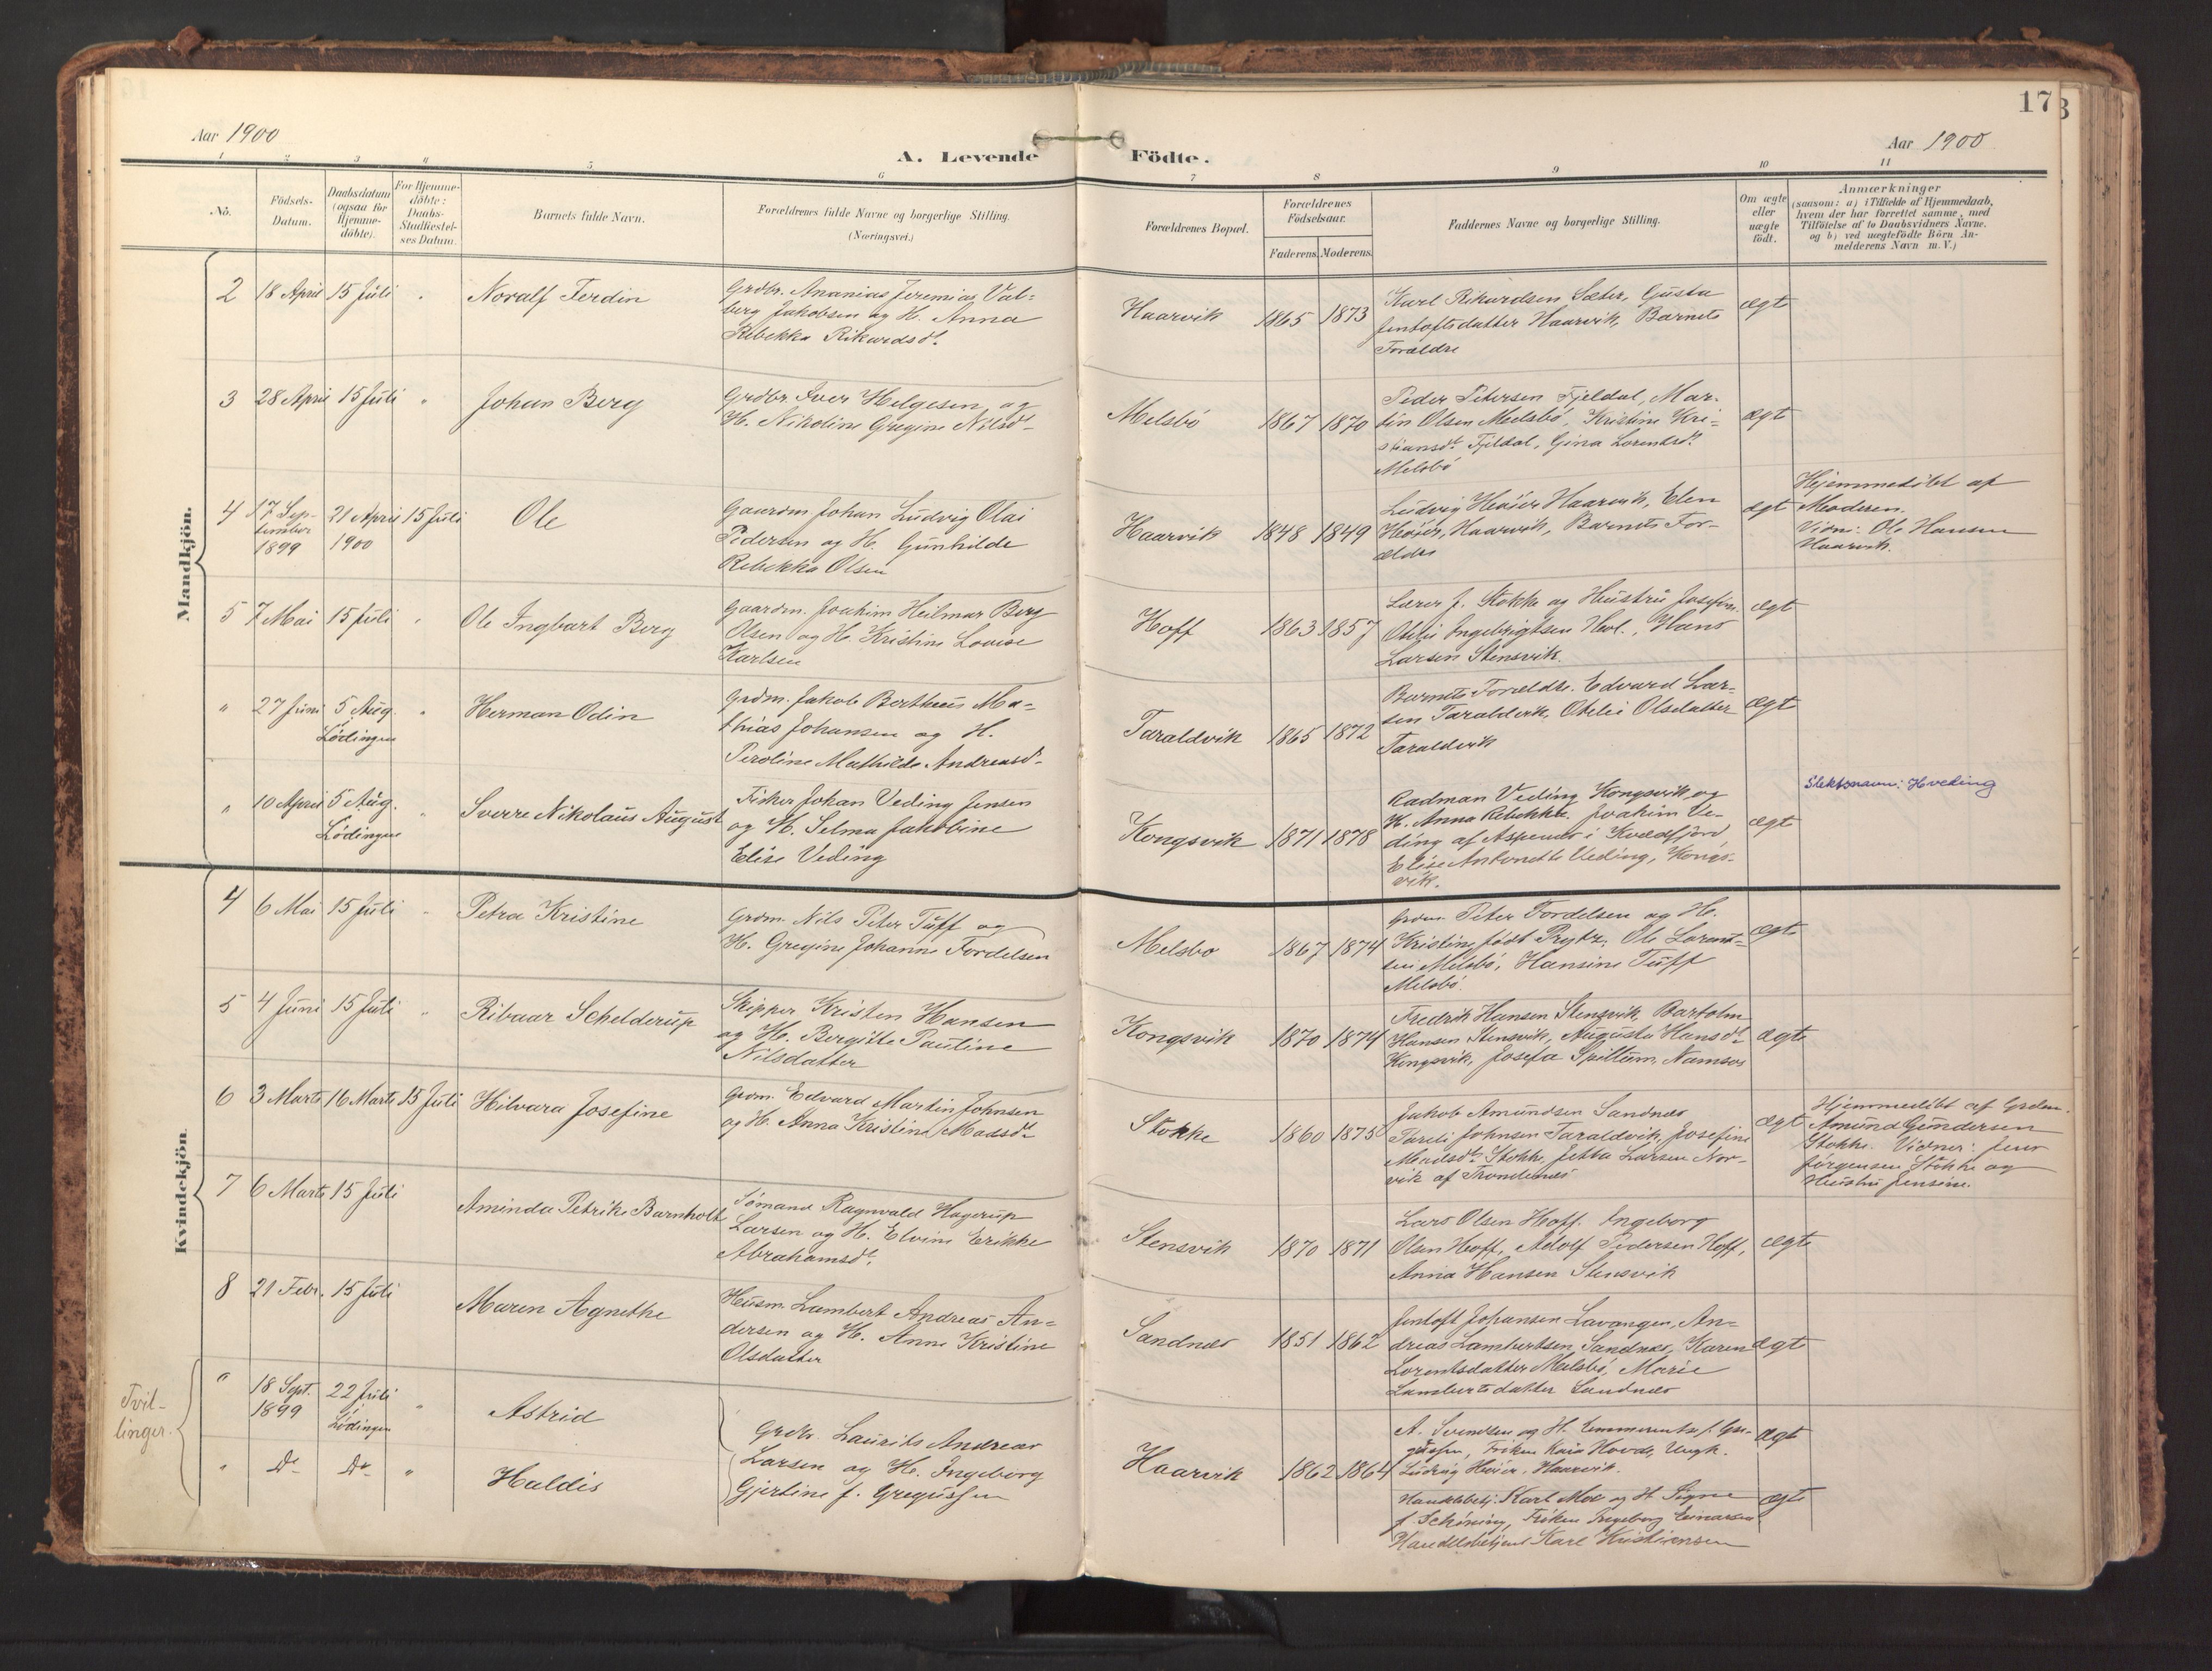 17
Aar 1900
A. Levende Födte.
Aar 1900
1 2 3 4 5 6 7 8 9 10 11
No.
Födsels-Datum.
Daabsdatum (ogsaa for Hjemme-döbte).
For Hjemme-döbte: Daabs-Stadfæstel-ses Datum.
Barnets fulde Navn.
Forældrenes fulde Navne og borgerlige Stilling.
(Næringsvei.)
Forældrenes Bopæl.
Forældrenes Födselsaar.
Faderens. Moderens.
Faddernes Navne og borgerlige Stilling.
Om ægte eller uægte födt.
Anmærkninger
(saasom: a) i Tilfælde af Hjemmedaab,
hvem der har forrettet samme, med
Tilföielse af to Daabsvidners Navne.
og b) ved uægtefödte Börn An-
melderens Navn m. V.)
Mandkjön.
2 18 April 15 Juli " Noralf Ferdin
Grdbr. Ananias Jeremias Val-
berg Jakobsen og H. Anna
Rebekka Rikardsdt.
Haarvik 1865 1873
Karl Rikardsen Sæter, Gusta
Jentoftsdatter Haarvik, Barnets
Forældre
ægt
3 28 April 15 Juli " Johan Berg
Grdbr Iver Helgesen og
H. Nikoline Gregine Nilsdt.
Melsbö 1867 1870
Peder Petersen Fjeldal, Mar-
tin Olsen Melsbö, Kristine Kri-
stiansdt. Fjeldal, Gina Lorentsdt.
Melsbö
ægt
4 17 Sep-
tember
1899
21 April
1900
15 Juli Ole
Gaardm Johan Ludvig Olai
Pedersen og H. Gunhilde
Rebekka Olsen
Haarvik 1848 1849
Ludvig Heöier Haarvik, Elen
Heöier, Haarvik, Barnets For-
ældre
ægt
Hjemmedöbt af
Moderen.
Vidn: Ole Hansen
Haarvik.
5 7 Mai 15 Juli " Ole Ingbart Berg
Gaardm. Joakim Heilmar Berg
Olsen og H. Kristine Lovise
Karlsen
Hoff 1863 1857
Lærer J. Stokke og Hustru Josefine.
Otelie Ingebrigtsen Hol., Hans
Larsen Stensvik.
ægt
" 27 Juni 5 Aug.
Lödingen
" Herman Odin
Grdm. Jakob Bertheus Ma-
thias Johansen og H.
Peroline Mathilde Andreasdt.
Taraldvik 1865 1872
Barnets Forældre. Edvard Lar-
sen Taraldvik, Otelie Olsdatter
Taraldvik
ægt
" 10 April 5 Aug.
Lödingen
" Sverre Nikolaus August
Fisker Johan Veding Jensen
og H. Selma Jakobine
Elise Veding
Kongsvik 1871 1878
Radman Veding Kongsvik og
H. Anna Rebekka. Joakim Ve-
ding af Aspenes i Kvædfjord
Elise Antonette Veding, Kongs-
vik.
ægt
Slektsnavn: Hveding
Kvindekjön.
4 6 Mai 15 Juli " Petra Kristine
Grdm. Nils Peter Tuff og
H. Gregine Johanne Fordelsen
Melsbo 1867 1874
Grdm. Peter Fordelsen og H.
Kristine födt Prytz. Ole Lorent-
sen Melsbö, Hansine Tuff
Melsbö.
ægt
5 4 Juni 15 Juli " Ribaar Schelderup
Skipper Kristen Hansen
og H. Bergitte Pauline
Nilsdatter
Kongsvik 1870 1874
Fredrik Hansen Stensvik, Bartolm
Hansen Stensvik, Augusta Hansdt.
Kongsvik, Josefa Spillum, Namsos
ægte
6 3 Marts 16 Marts 15 Juli Hilvara Josefine
Grdm. Edvard Martin Johnsen
og H. Anna Kristine Madsdt.
Stokke 1860 1875
Jakob Amundsen Sandnæs
Pareli Johnsen Taraldvik, Josefine
Madsdt. Stokke, Jetta Larsen Nor-
vik af Trondenæs
ægt
Hjemmedöbt af Grdm.
Amund Gundersen
Stokke. Vidner: Jens
Jörgensen Stokke og
Hustru Jensine.
7 6 Marts 15 Juli Aminda Petrike Barnholt
Sömand Ragnvald Hagerup
Larsen og H. Elvine Erikke
Abrahamsdt.
Stensvik 1870 1871
Lars Olsen Hoff. Ingeborg
Olsen Hoff, Adolf Pedersen Hoff,
Anna Hansen Stensvik
ægte
8 21 Febr. 15 Juli Maren Agnethe
Husm. Lambert Andreas An-
dersen og H. Anne Kristine
Olsdatter
Sandnæs 1851 1862
Jentoft Johansen Lavangen, An-
dreas Lambertsen Sandnæs, Karen
Lorentsdatter Melsbö, Marie
Lambertsdatter Sandnæs
ægte
Tvil-
linger.
" 18 Sept.
1899
22 Juli
Lödingen
" Astrid
Grdbr. Laurits Andreas
Larsen og H. Ingeborg
Gjertine f. Gregussen
Haarvik 1862 1864
A. Svendsen og H. Emmerentse f. Gre-
gussen, Fröken Kaia Hovde, Ungk.
Ludvig Heöier, Haarvik.
ægte
" Do Do " Haldis
Handelsbetj. Karl Moe og H. Signe
f. Schöning, Fröken Ingeborg Einarsen
Handelsbetjent Karl Kristiansen
ægte